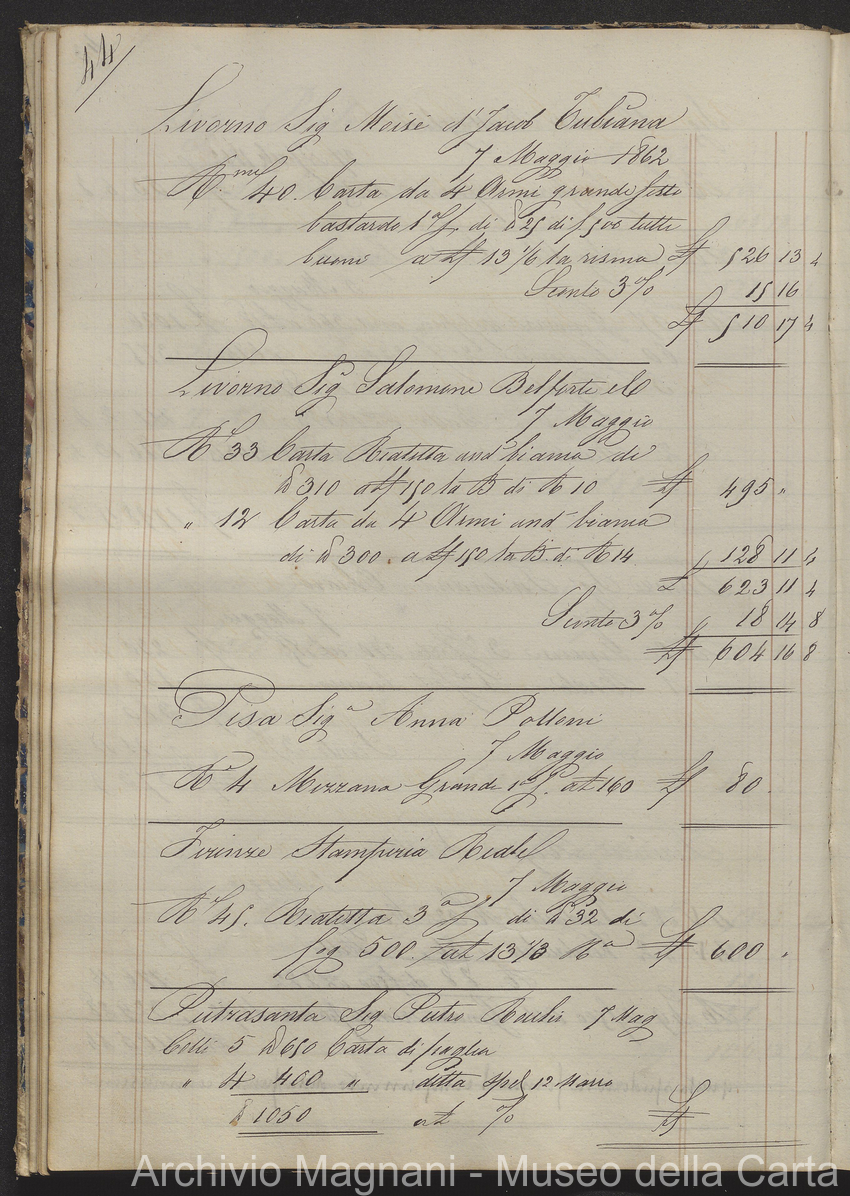 44
Livorno Sig Moisè d'Jacob Tubiana
7 Maggio 1862
R.me 40. Carta da 4 Armi grande sesto
bastardo 1a f. di ℔ 25 di f 500 tutte
buone a £ 13 1/6 la risma £ 526 13 4
Sconto 3 % 15 16
£ 510 17 4
Livorno Sig.a Salomone Belforte e C
7 Maggio
R.e 33 Carta Realetta and bianca di
℔ 310 a £ 150 la B di R 10 £ 495 "
" 12 Carta da 4 Armi and bianca
di ℔ 300. a £ 150 la B. di R 14 " 128 11 4
£ 623 11 4
Sconto 3 % " 18 14 8
£ 604 16 8
Pisa Sig.a Anna Polloni
7 Maggio
R.e 4 Mezzana Grande 1a f. a £ 160 £ 80.
Firenze Stamperia Reale
7 Maggio
R.e 45. Realetta 3a f di ℔ 32 di
fog 500. a £ 13 1/3 R.a £ 600 "
Pietrasanta Sig Pietro 7 Mag
Colli 5 ℔ 650 Carta di paglia
" 4 400 " detta sped 12 Marzo
℔ 1050 a £ % £
Archivio Magnani - Museo della Carta